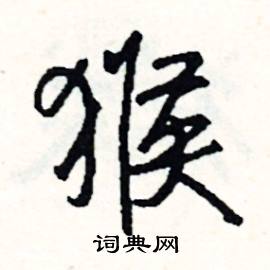 猴
词典网